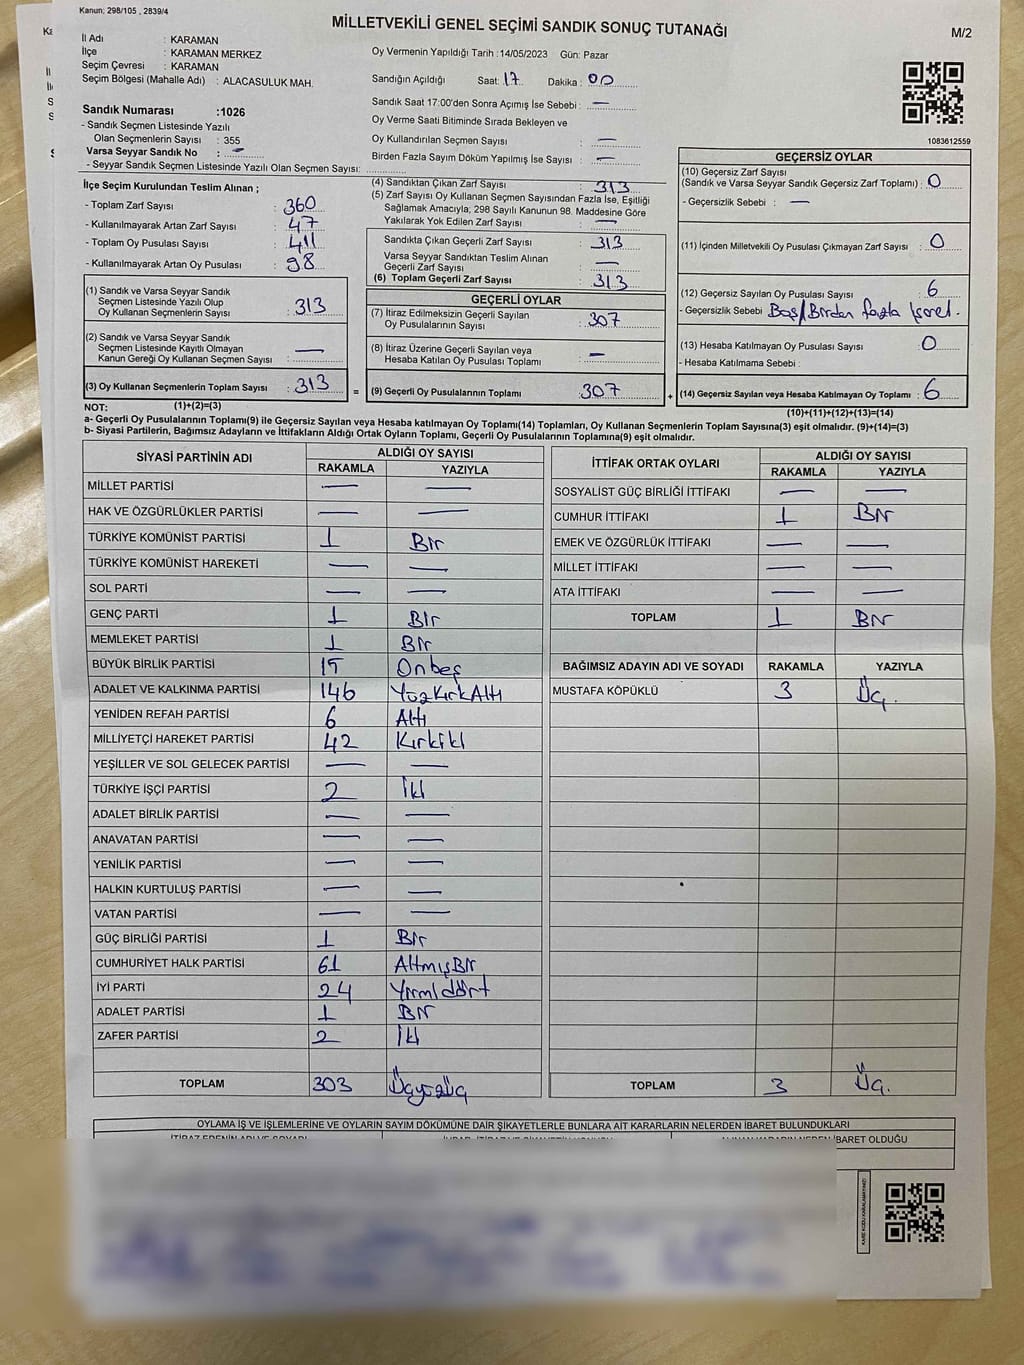 Kanun: 298/105 , 2839/4
MİLLETVEKİLİ GENEL SEÇİMİ SANDIK SONUÇ TUTANAĞI
M/2
İl Adı : KARAMAN
İlçe : KARAMAN MERKEZ
Seçim Çevresi : KARAMAN
Seçim Bölgesi (Mahalle Adı) : ALACASULUK MAH.
Oy Vermenin Yapıldığı Tarih : 14/05/2023 Gün: Pazar
Sandığın Açıldığı Saat: 17 Dakika : 00
Sandık Saat 17:00'den Sonra Açımış İse Sebebi : —
Oy Verme Saati Bitiminde Sırada Bekleyen ve
Oy Kullandırılan Seçmen Sayısı : —
Birden Fazla Sayım Döküm Yapılmış İse Sayısı : —
Sandık Numarası :1026
- Sandık Seçmen Listesinde Yazılı
Olan Seçmenlerin Sayısı : 355
Varsa Seyyar Sandık No : —
- Seyyar Sandık Seçmen Listesinde Yazılı Olan Seçmen Sayısı:
1083612559
İlçe Seçim Kurulundan Teslim Alınan ;
- Toplam Zarf Sayısı : 360
- Kullanılmayarak Artan Zarf Sayısı : 47
- Toplam Oy Pusulası Sayısı : 411
- Kullanılmayarak Artan Oy Pusulası : 98
(1) Sandık ve Varsa Seyyar Sandık
Seçmen Listesinde Yazılı Olup
Oy Kullanan Seçmenlerin Sayısı : 313
(2) Sandık ve Varsa Seyyar Sandık
Seçmen Listesinde Kayıtlı Olmayan
Kanun Gereği Oy Kullanan Seçmen Sayısı : —
(3) Oy Kullanan Seçmenlerin Toplam Sayısı : 313
(1)+(2)=(3)
(4) Sandıktan Çıkan Zarf Sayısı : 313
(5) Zarf Sayısı Oy Kullanan Seçmen Sayısından Fazla İse, Eşitliği
Sağlamak Amacıyla; 298 Sayılı Kanunun 98. Maddesine Göre
Yakılarak Yok Edilen Zarf Sayısı : —
Sandıkta Çıkan Geçerli Zarf Sayısı : 313
Varsa Seyyar Sandıktan Teslim Alınan
Geçerli Zarf Sayısı : —
(6) Toplam Geçerli Zarf Sayısı : 313
GEÇERLİ OYLAR
(7) İtiraz Edilmeksizin Geçerli Sayılan
Oy Pusulalarının Sayısı : 307
(8) İtiraz Üzerine Geçerli Sayılan veya
Hesaba Katılan Oy Pusulası Toplamı : —
= (9) Geçerli Oy Pusulalarının Toplamı : 307
GEÇERSİZ OYLAR
(10) Geçersiz Zarf Sayısı
(Sandık ve Varsa Seyyar Sandık Geçersiz Zarf Toplamı) : 0
- Geçersizlik Sebebi : —
(11) İçinden Milletvekili Oy Pusulası Çıkmayan Zarf Sayısı : 0
(12) Geçersiz Sayılan Oy Pusulası Sayısı : 6
- Geçersizlik Sebebi Boş/Birden fazla İşaret.
(13) Hesaba Katılmayan Oy Pusulası Sayısı : 0
- Hesaba Katılmama Sebebi :
+ (14) Geçersiz Sayılan veya Hesaba Katılmayan Oy Toplamı : 6
(10)+(11)+(12)+(13)=(14)
NOT:
a- Geçerli Oy Pusulalarının Toplamı(9) ile Geçersiz Sayılan veya Hesaba katılmayan Oy Toplamı(14) Toplamları, Oy Kullanan Seçmenlerin Toplam Sayısına(3) eşit olmalıdır. (9)+(14)=(3)
b- Siyasi Partilerin, Bağımsız Adayların ve İttifakların Aldığı Ortak Oyların Toplamı, Geçerli Oy Pusulalarının Toplamına(9) eşit olmalıdır.
SİYASİ PARTİNİN ADI ALDIĞI OY SAYISI
RAKAMLA YAZIYLA
MİLLET PARTİSİ — —
HAK VE ÖZGÜRLÜKLER PARTİSİ — —
TÜRKİYE KOMÜNİST PARTİSİ 1 Bir
TÜRKİYE KOMÜNİST HAREKETİ — —
SOL PARTİ — —
GENÇ PARTİ 1 Bir
MEMLEKET PARTİSİ 1 Bir
BÜYÜK BİRLİK PARTİSİ 15 Onbeş
ADALET VE KALKINMA PARTİSİ 146 YüzKırkAltı
YENİDEN REFAH PARTİSİ 6 Altı
MİLLİYETÇİ HAREKET PARTİSİ 42 Kırkiki
YEŞİLLER VE SOL GELECEK PARTİSİ — —
TÜRKİYE İŞÇİ PARTİSİ 2 İki
ADALET BİRLİK PARTİSİ — —
ANAVATAN PARTİSİ — —
YENİLİK PARTİSİ — —
HALKIN KURTULUŞ PARTİSİ — —
VATAN PARTİSİ — —
GÜÇ BİRLİĞİ PARTİSİ 1 Bir
CUMHURİYET HALK PARTİSİ 61 AltmışBir
İYİ PARTİ 24 Yirmidört
ADALET PARTİSİ 1 Bir
ZAFER PARTİSİ 2 İki
TOPLAM 303 Üçyüzüç
İTTİFAK ORTAK OYLARI ALDIĞI OY SAYISI
RAKAMLA YAZIYLA
SOSYALİST GÜÇ BİRLİĞİ İTTİFAKI — —
CUMHUR İTTİFAKI 1 Bir
EMEK VE ÖZGÜRLÜK İTTİFAKI — —
MİLLET İTTİFAKI — —
ATA İTTİFAKI — —
TOPLAM 1 Bir
BAĞIMSIZ ADAYIN ADI VE SOYADI RAKAMLA YAZIYLA
MUSTAFA KÖPÜKLÜ 3 Üç.
TOPLAM 3 Üç.
OYLAMA İŞ VE İŞLEMLERİNE VE OYLARIN SAYIM DÖKÜMÜNE DAİR ŞİKAYETLERLE BUNLARA AİT KARARLARIN NELERDEN İBARET BULUNDUKLARI
İBARET OLDUĞU